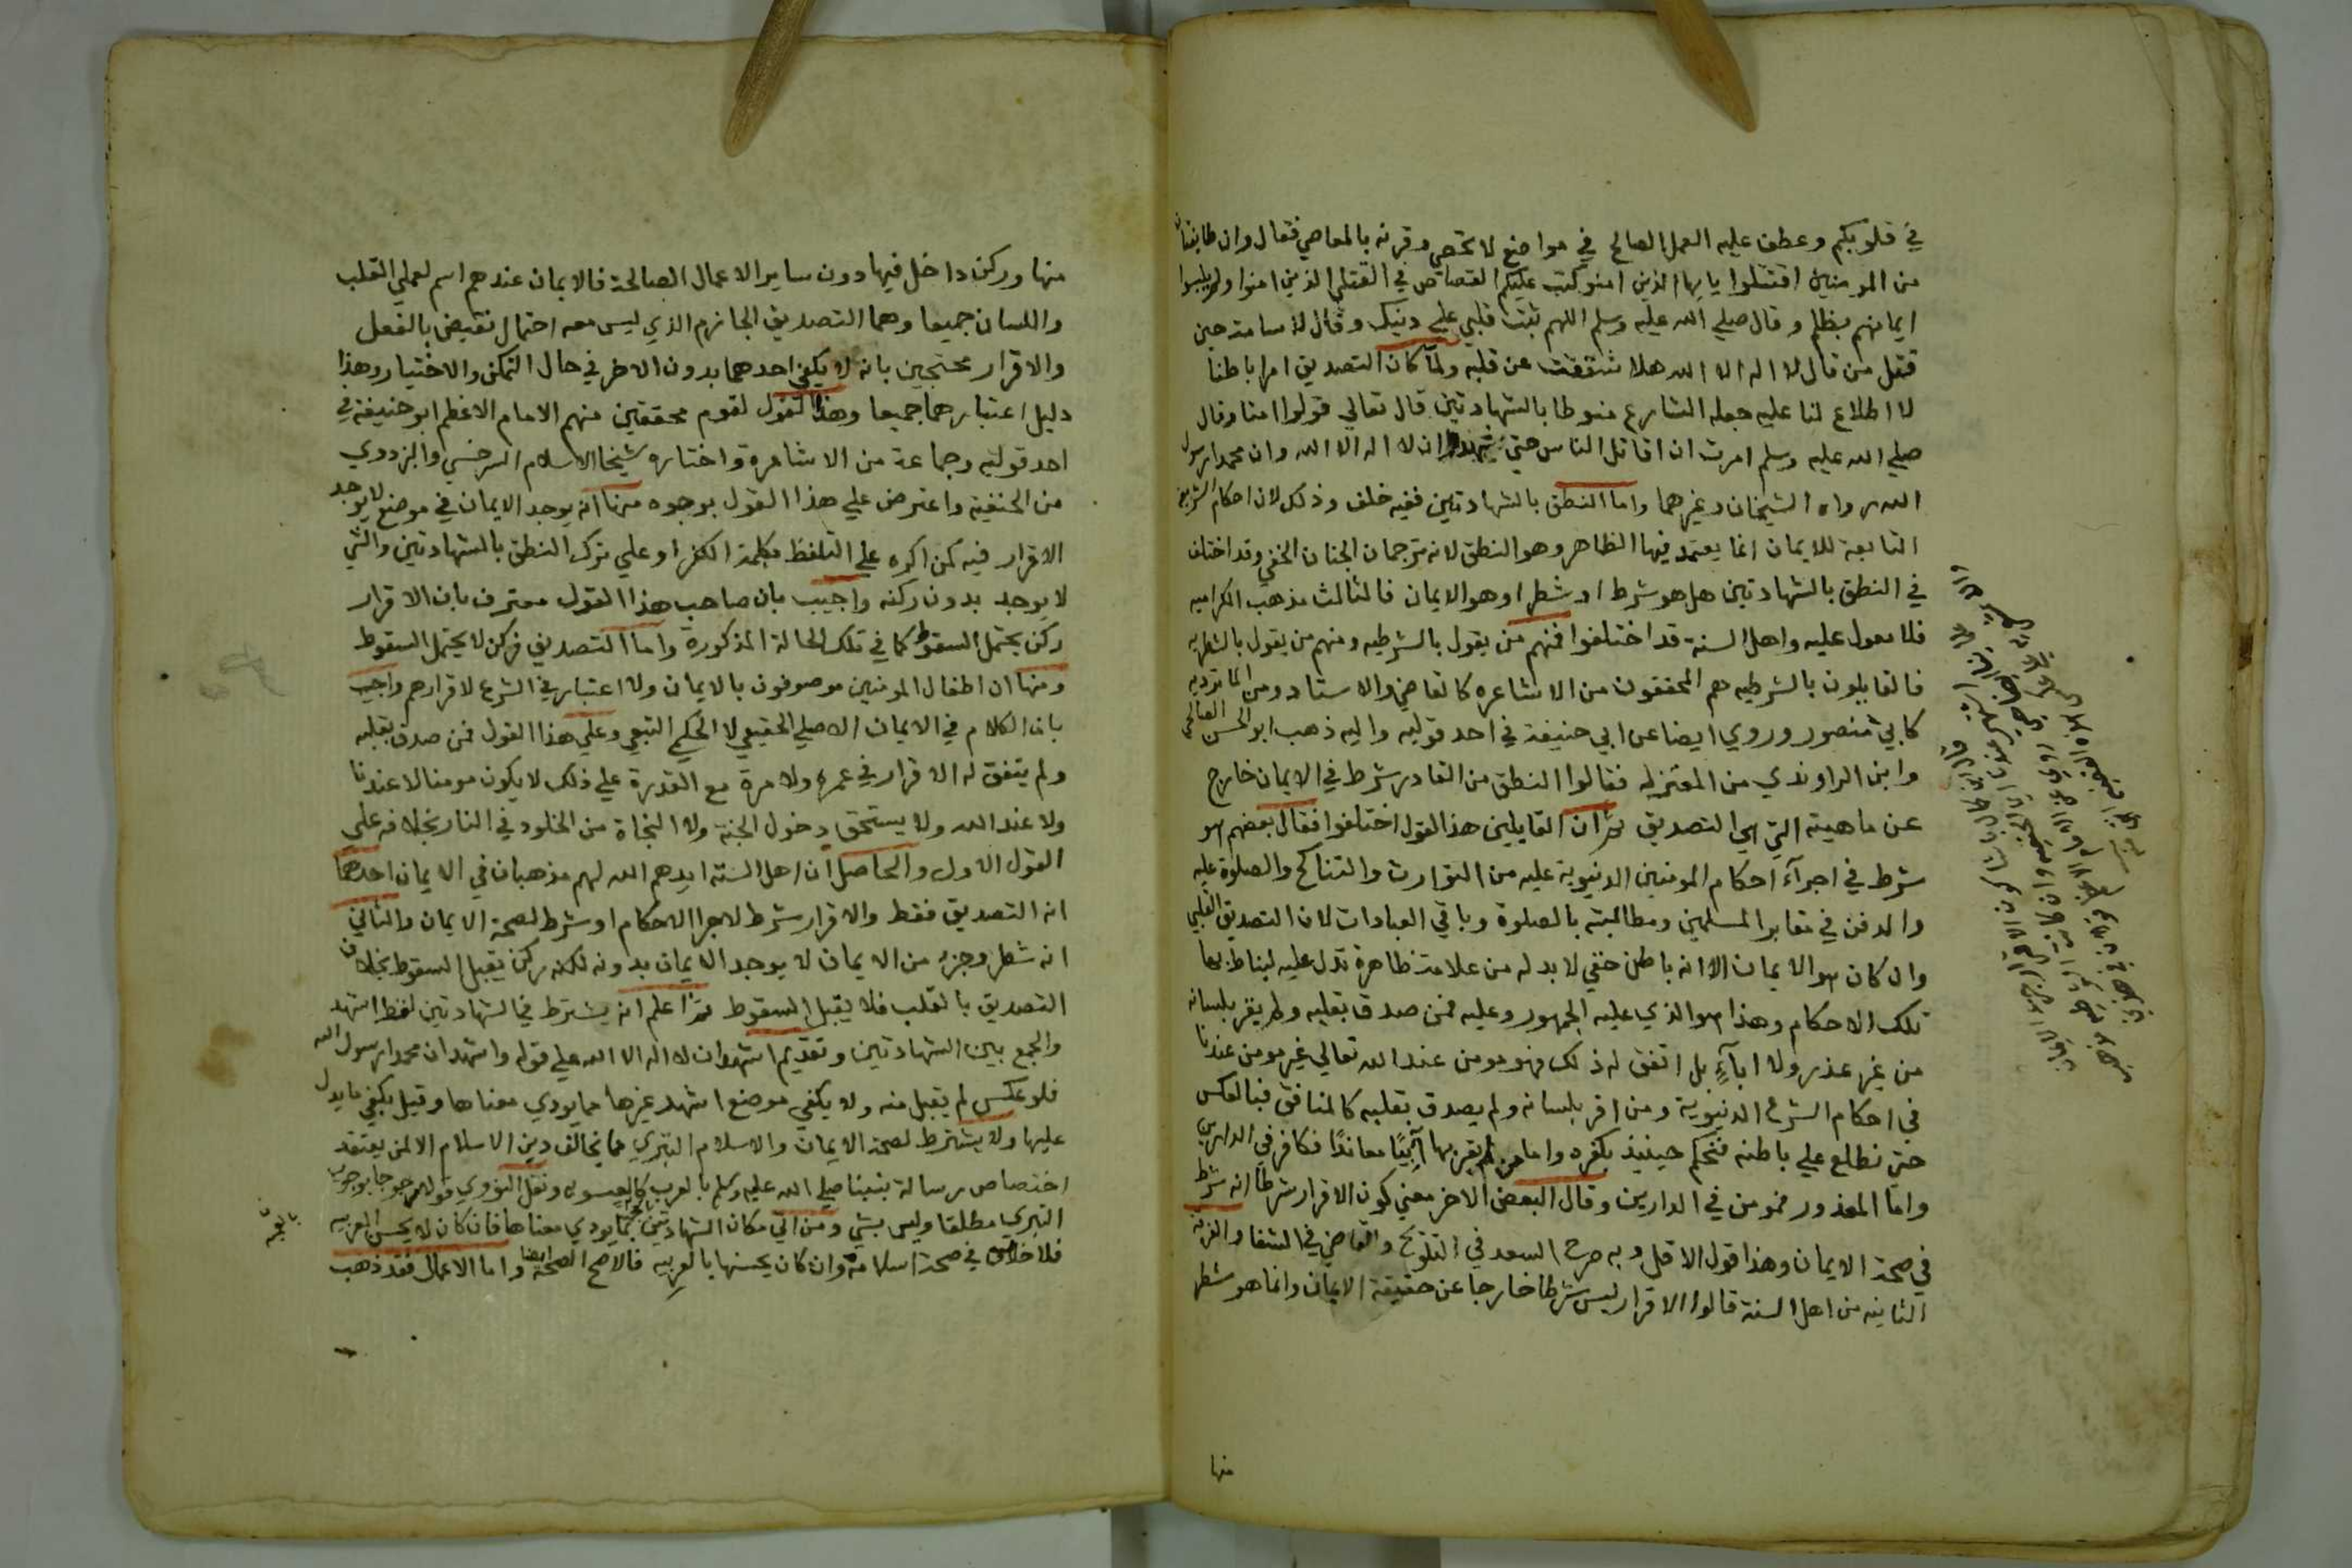 في قلوبكم وعطف عليه العمل الصالح في مواضع لا تحصى وقرنه بالمعاصي فقال وان طايفتان
من المومنين اقتتلوا يايها الذين امنو كتب عليكم القصاص في القتلى الذين امنوا ولم يلبسوا
ايمانهم بظلم وقال صلي الله عليه وسلم اللهم ثبت قلبي علي دينك وقال لاسامة حين
قتل من قال لا اله الا الله هلا شققت عن قلبه ولما كان التصديق امرا باطنا
لا اطلاع لنا عليه جعله الشارع منوطا بالشهادتين قال تعالي قولوا امنا وقال
صلي الله عليه وسلم امرت ان اقاتل الناس حتي يشهدوا ان لا اله الا الله وان محمدا رسول
الله رواه الشيخان وغيرهما واما النطق بالشهادتين ففيه خلف وذلك لان احكام الشرعية
التابعة للايمان انما يعتمد فيها الظاهر وهو النطق لانه ترجمان الجنان الخفي وقد اختلف
في النطق بالشهادتين هل هو شرط او شطر او هو الايمان فالثالث مذهب الكراميه
فلا معول عليه واهل السنة قد اختلفوا فمنهم من يقول بالشرطيه ومنهم من يقول بالشطريه
فالقايلون بالشرطيه هم المحققون من الاشاعره كالقاضي والاستاد ومن الماتريديه
كابي منصور وروي ايضا عن ابي حنيفة في احد قوليه واليه ذهب ابو الحسن الصالحي
وابن الراوندي من المعتزله فقالوا النطق من القادر شرط في الايمان خارج
عن ماهيته التي هي التصديق ثم ان القايلين هذا القول اختلفوا فقال بعضهم هو
شرط في اجرآء احكام المومنين الدنيوية عليه من التوارث والتناكح والصلوة عليه
والدفن في مقابر المسلمين ومطالبته بالصلوة وباقي العبادات لان التصديق القلبي
وان كان هو الايمان الا انه باطن خفي لا بد له من علامة ظاهرة تدل عليه ليناط بها
تلك الاحكام وهذا هو الذي عليه الجمهور وعليه فمن صدق بقلبه ولم يقر بلسانه
من غير عذر ولا ابآءٍ بل اتفق له ذلك فهو مومن عند الله تعالي غير مومن عندنا
في احكام الشرع الدنيوية ومن اقر بلسانه ولم يصدق بقلبه كالمنافق فبالعكس
حتي نطلع علي باطنه فنحكم حينيذ بكفره واما من لم يقر بها آبيًا معاندًا فكافر في الدارين
واما المعذور فمومن في الدارين وقال البعض الاخر معني كون الاقرار شرطا انه شرط
في صحة الايمان وهذا قول الاقل وبه صرح السعد في التلويح والقاضي في الشفا
الثانيه من اهل السنة قالوا الاقرار ليس شرطا خارجا عن حقيقة الايمان وانما هو شطر
منها
منها وركن داخل فيها دون ساير الاعمال الصالحة فالايمان عندهم اسم لعملي القلب
واللسان جميعا وهما التصديق الجازم الذي ليس معه احتمال نقيض بالفعل
والاقرار محتجين بانه لا يكفي احدهما بدون الاخر في حال التمكن والاختيار وهذا
دليل اعتبارهما جميعا وهذا القول لقوم محققين منهم الامام الاعظم ابو حنيفة في
احد قوليه وجماعة من الاشاعرة واختاره شيخا الاسلام السرخسي والبزدوي
من الحنفية واعترض علي هذا القول بوجوه منها انه يوجد الايمان في موضع لا يوجد
الاقرار فيه كمن اكره علي التلفظ بكلمة الكفر او علي ترك النطق بالشهادتين والشي
لا يوجد بدون ركنه واجيب بان صاحب هذا القول معترف بان الاقرار
ركن يحتمل السقوط كما في تلك الحالة المذكورة واما التصديق فركن لا يحتمل السقوط
ومنها ان اطفال المومنين موصوفون بالايمان ولا اعتبار في الشرع لاقرارهم واجيب
بان الكلام في الايمان الاصلي الحقيقي لا الحكمي التبعي وعلي هذا القول فمن صدق بقلبه
ولم يتفق له الاقرار في عمره ولا مرة مع القدرة علي ذلك لا يكون مومنا لا عندنا
ولا عند الله ولا يستحق دخول الجنة ولا النجاة من الخلود في النار بخلافه علي
القول الاول والحاصل ان اهل السنة ايدهم الله لهم مذهبان في الايمان احدهما
انه التصديق فقط والاقرار شرط لاجرا الاحكام او شرط لصحة الايمان والثاني
انه شطر وجزء من الايمان لا يوجد الايمان بدونه لكنه ركن يقبل السقوط بخلاف
التصديق بالقلب فلا يقبل السقوط ثم اعلم انه يشترط في الشهادتين لفظ اشهد
والجمع بين الشهادتين وتقديم اشهد ان لا اله الا الله علي قوله واشهد ان محمدا رسول الله
فلو عكس لم يقبل منه ولا يكفي موضع اشهد غيرها مما يودي معناها وقيل يكفي ما يدل
عليها ولا يشترط لصحة الايمان والاسلام التبري مما يخالف دين الاسلام الا لمن يعتقد
اختصاص رسالة نبينا صلي الله عليه وسلم بالعرب كالعيسويه ونقل النووي قولا مرجوحا بوجوب
التبري مطلقا وليس بشي ومن اتي مكان الشهادتين بما يودي معناها فان كان لا يحسن العربيه
فلا خلاف في صحة اسلامه وان كان يحسنها بالعربيه فالاصح الصحة ايضا واما الاعمال فقد ذهب